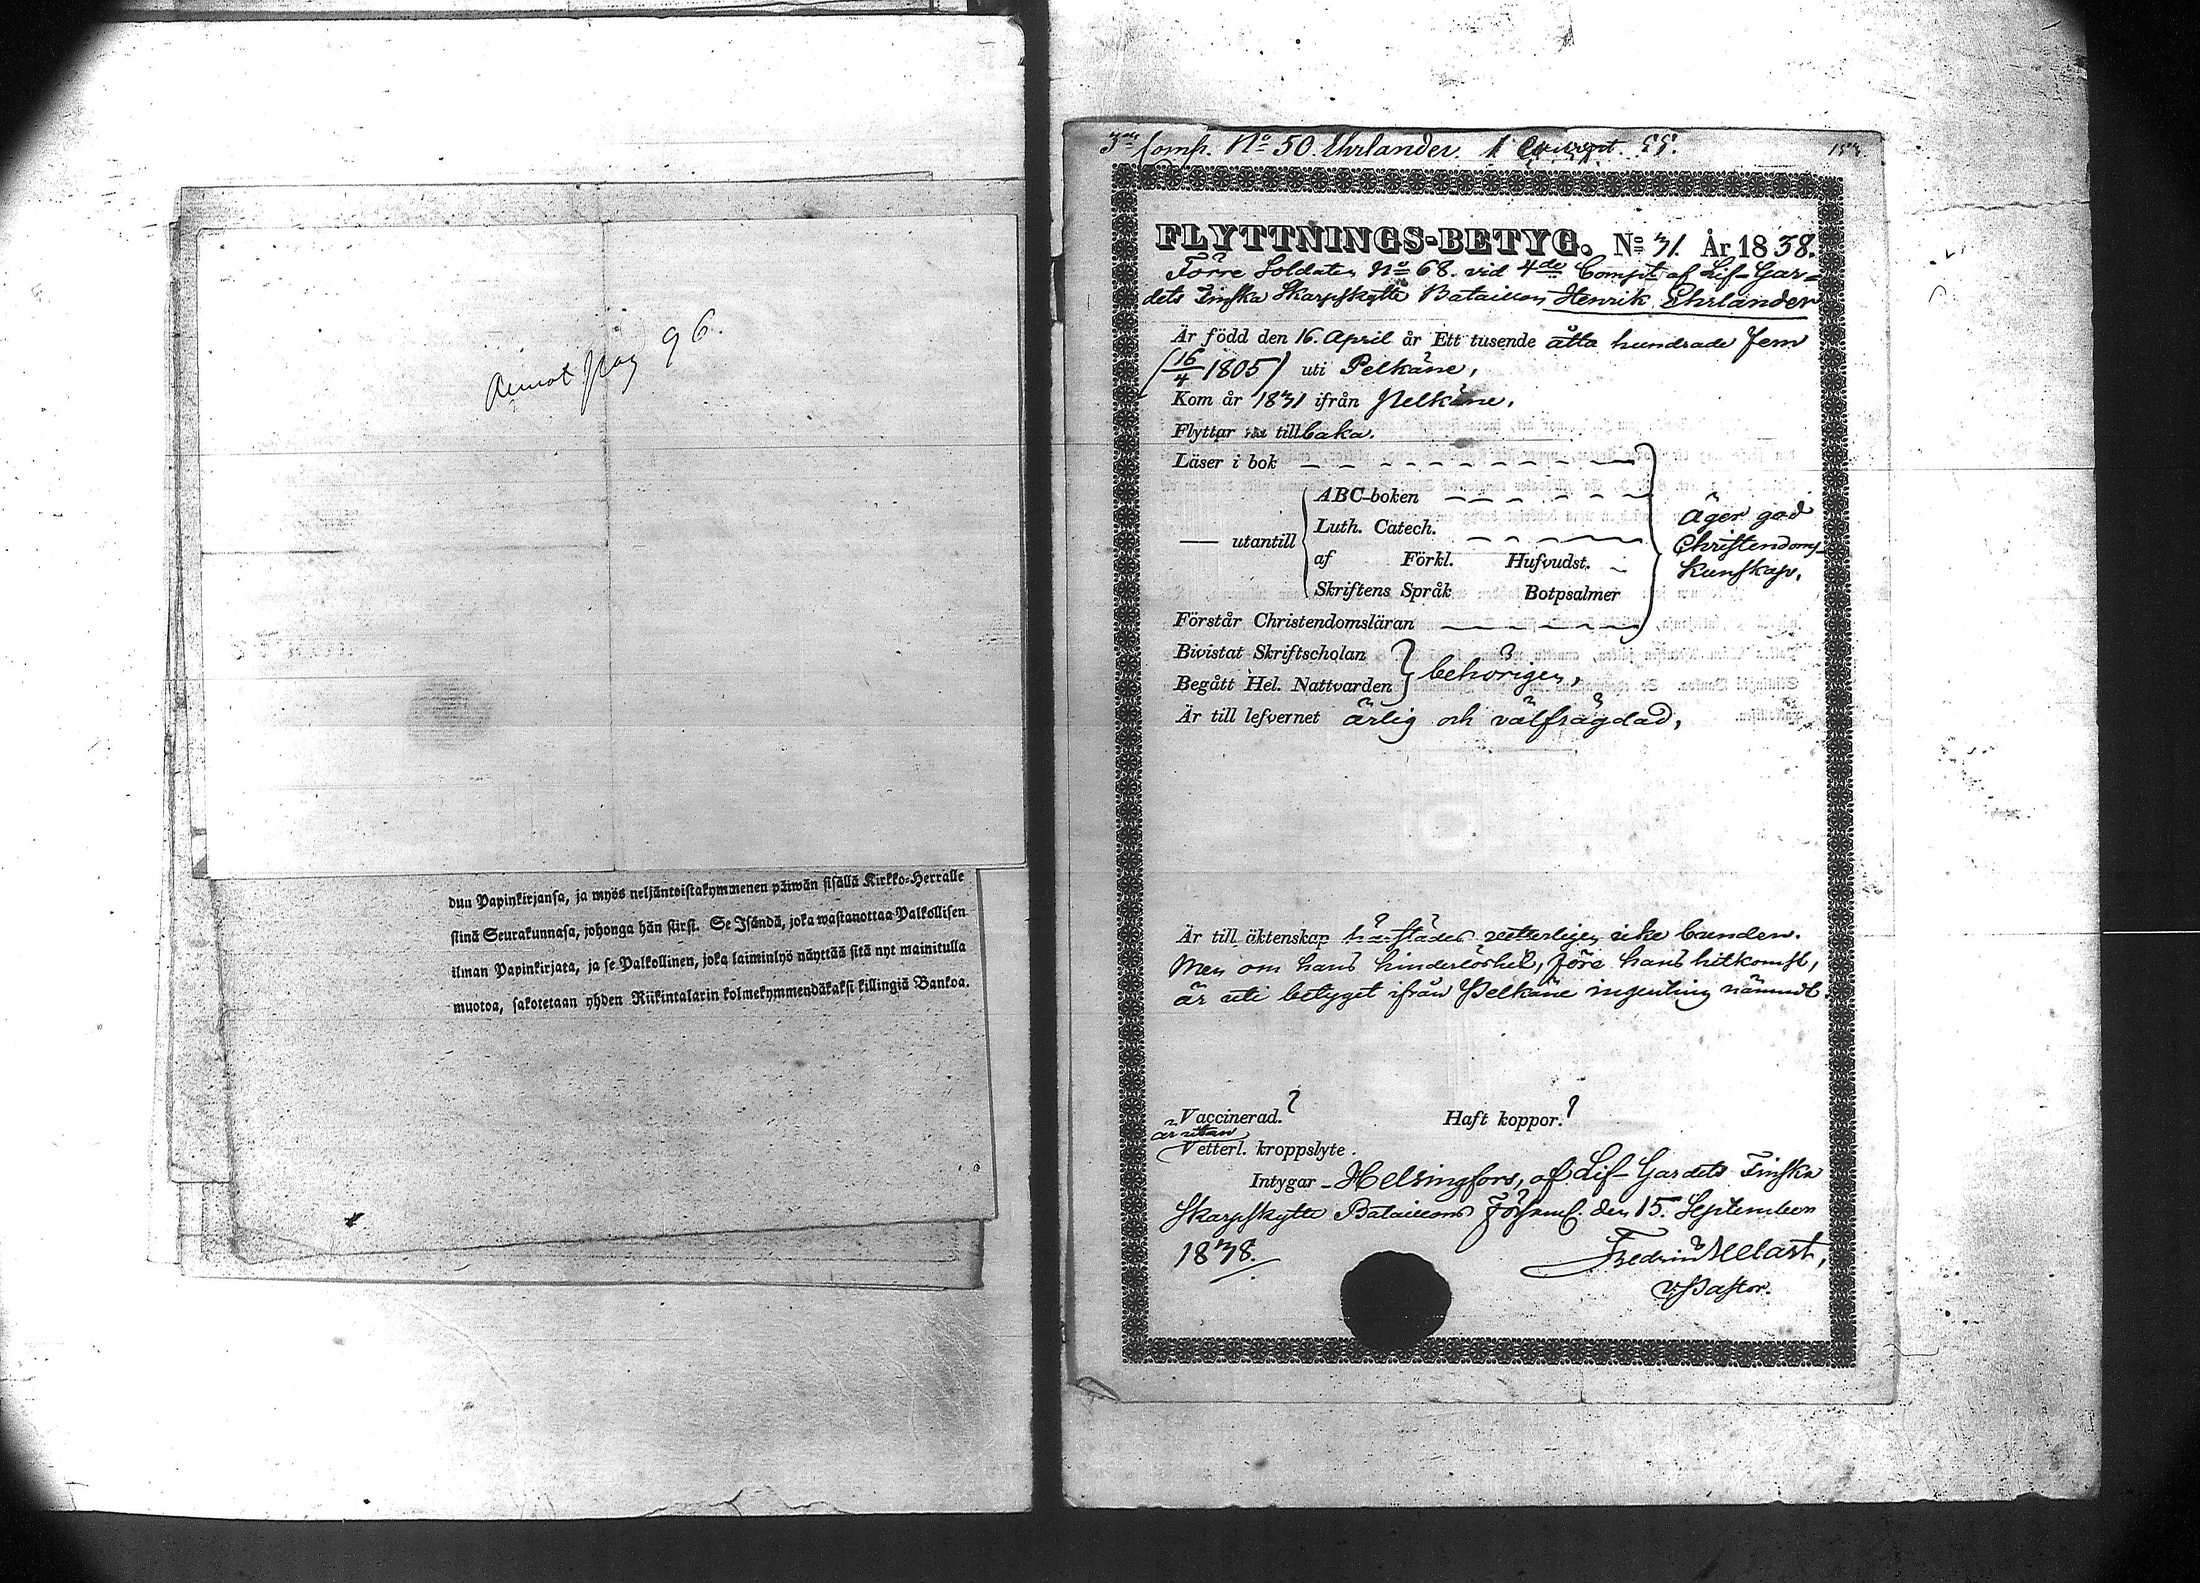 Annot pag 96.
dun Papinkirjansa, ja myös neljäntoistakymmenen päiwän sisällä Kirkko-Herralle
siinä Seurakunnasa, johonga hän siirsi. Se Isändä, joka wastanottaa Palkollisen
ilman Papinkirjata, ja se Palkollinen, joka laiminlyö näyttää sitä nyt mainitulla
muotoa, sakotetaan yhden Riikintalarin kolmekymmendäkaksi killingiä Bankoa.
Comp. No 50. Ehrlander.
FLYTTNINGS-BETYG. No 31. År 1838.
Förre Soldaten No 68. vid 4de Compt. af Lif-Gar-
dets Finska Skarpskytte Bataillon Henrik Ehrlander
Är född den 16. April år Ett tusende åtta hundrade fem
(16/4 1805) uti Pelkäne,
Kom år 1831 ifrån Pelkäne.
Flyttar nu tillbaka.
Läser i bok
ABC-boken
Luth. Catech.
— utantill
af Förkl. Hufvudst.
Skriftens Språk Botpsalmer
Äger god
Christendoms-
kunskap.
Förstår Christendomsläran
Bivistat Skriftscholan
Begått Hel. Nattvarden
behörigen,
Är till lefvernet ärlig och välfrägdad,
Är till äktenskap härstädes vetterligen icke bunden.
Men om hans hinderlöshet, före hans hitkomst,
är uti betyget ifrån Pelkäne ingenting nämndt.
Vaccinerad.? Haft koppor.?
är utan
Vetterl. kroppslyte.
Intygar - Helsingfors, af Lif-Gardets Finska
Skarpskytte Bataillons Församl. den 15. September
1838.
Fredrik Melart,
v. Pastor.